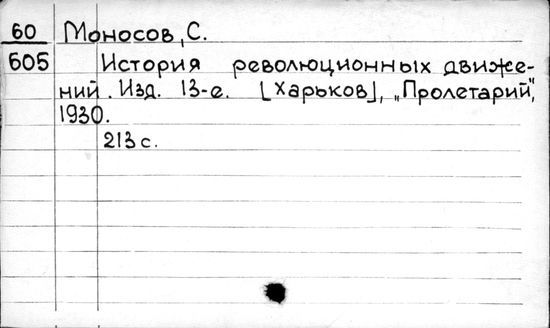 60 Моносов, С.
605 История революционных движе-
ний. Изд. 13-е. [Харьков], „Пролетарий",
1930.
213 с.